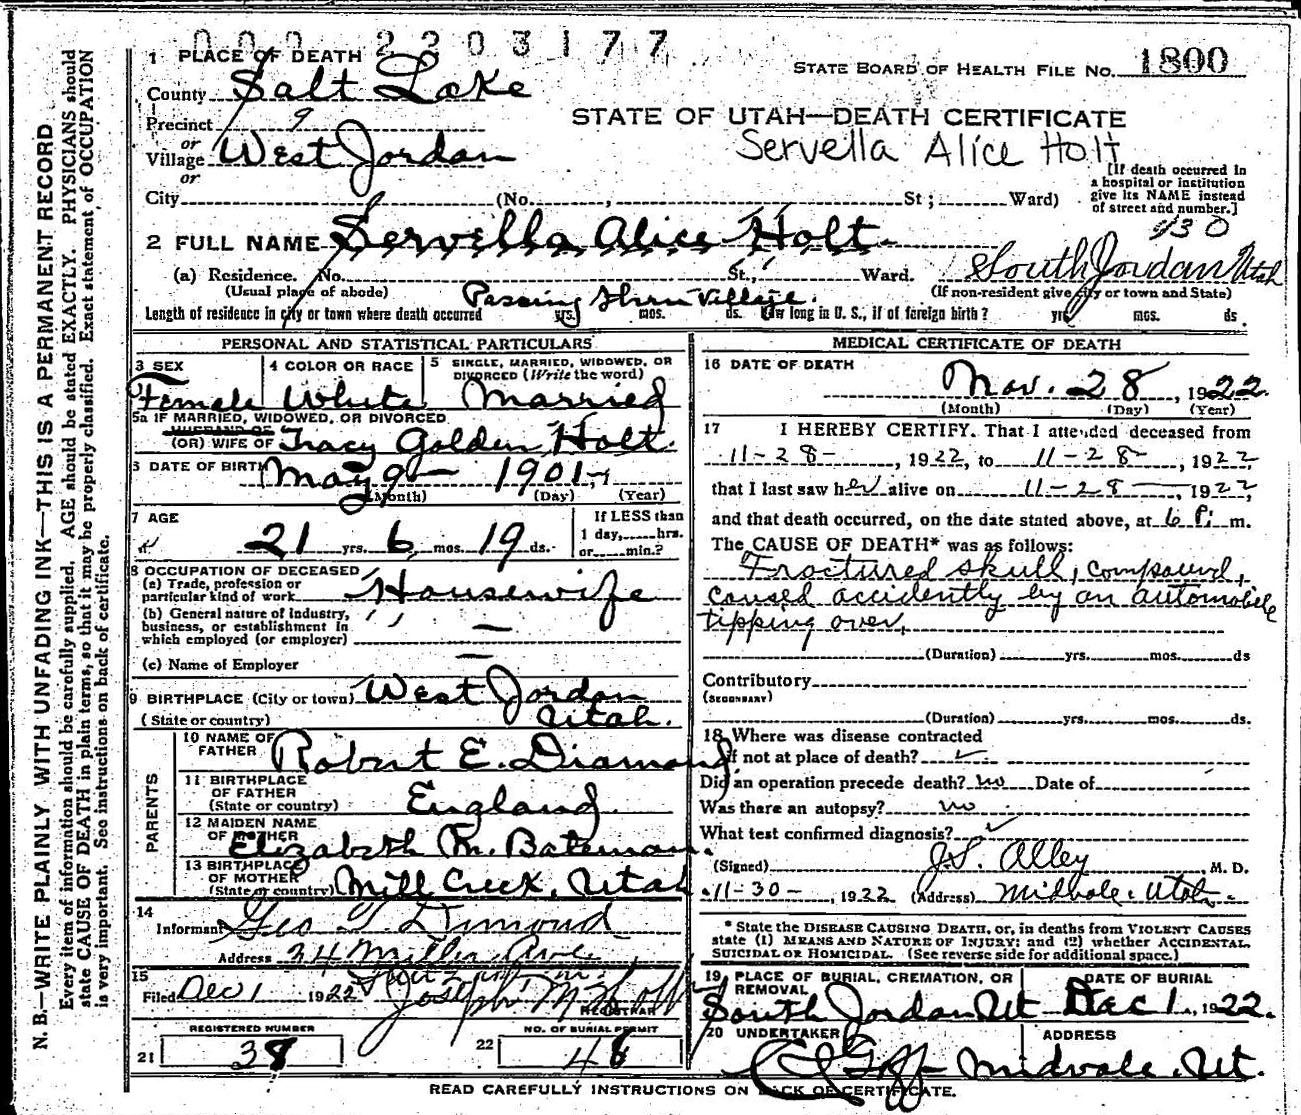 000 2203177
1 PLACE OF DEATH
STATE BOARD OF HEALTH FILE NO. 1800
County Salt Lake
STATE OF UTAH—DEATH CERTIFICATE
Precinct 9
Servella Alice Holt
or
Village West Jordan
or
[If death occurred in
a hospital or institution
give its NAME instead
of street and number.]
City (No. , St ; Ward)
430
2 FULL NAME Servella Alice Holt.
(a) Residence. No. St., Ward. South Jordan Utah
(Usual place of abode) Passing thru Village. (If non-resident give city or town and State)
Length of residence in city or town where death occurred yrs. mos. ds. How long in U. S., if of foreign birth ? yrs. mos. ds.
PERSONAL AND STATISTICAL PARTICULARS
3 SEX
Female
4 COLOR OR RACE
White
5 SINGLE, MARRIED, WIDOWED, OR
DIVORCED (Write the word)
Married
5a IF MARRIED, WIDOWED, OR DIVORCED
HUSBAND OF
(OR) WIFE OF Tracy Golden Holt.
6 DATE OF BIRTH May 9 — 1901
(Month) (Day) (Year)
7 AGE
21 yrs. 6 mos. 19 ds.
If LESS than
1 day, hrs.
or min.?
8 OCCUPATION OF DECEASED
(a) Trade, profession or
particular kind of work Housewife
(b) General nature of industry,
business, or establishment in
which employed (or employer) —
(c) Name of Employer —
9 BIRTHPLACE (City or town) West Jordan
(State or country) Utah.
PARENTS
10 NAME OF
FATHER Robert E. Diamond
11 BIRTHPLACE
OF FATHER
(State or country) England
12 MAIDEN NAME
OF MOTHER
Elizabeth M. Bateman.
13 BIRTHPLACE
OF MOTHER
(State or country) Mill Creek, Utah
14
Informant Geo T. Dimond
Address 24 Miller Ave
15
Filed Dec 1 1922 Joseph M Holt
REGISTRAR
REGISTERED NUMBER
21 38
NO. OF BURIAL PERMIT
22 46
MEDICAL CERTIFICATE OF DEATH
16 DATE OF DEATH
Nov. 28, 1922.
(Month) (Day) (Year)
17 I HEREBY CERTIFY. That I attended deceased from
11-28-, 1922, to 11-28-, 1922
that I last saw her alive on 11-28-, 1922,
and that death occurred, on the date stated above, at 6 P. m.
The CAUSE OF DEATH* was as follows:
Fractured skull, compound,
caused accidently by an automobile
tipping over.
(Duration) yrs. mos. ds
Contributory
(SECONDARY)
(Duration) yrs. mos. ds.
18 Where was disease contracted
if not at place of death? ✓
Did an operation precede death? no Date of
Was there an autopsy? no
What test confirmed diagnosis? ✓
(Signed) J.S. Alley M. D.
11-30-, 1922 (Address) Midvale, Utah.
* State the DISEASE CAUSING DEATH, or, in deaths from VIOLENT CAUSES
state (1) MEANS AND NATURE OF INJURY; and (2) whether ACCIDENTAL,
SUICIDAL OR HOMICIDAL. (See reverse side for additional space.)
19 PLACE OF BURIAL, CREMATION, OR
REMOVAL
South Jordan Ut
DATE OF BURIAL
Dec 1., 1922.
20 UNDERTAKER
Goff
ADDRESS
Midvale, Ut.
READ CAREFULLY INSTRUCTIONS ON BACK OF CERTIFICATE.
N. B.—WRITE PLAINLY WITH UNFADING INK—THIS IS A PERMANENT RECORD
Every item of information should be carefully supplied. AGE should be stated EXACTLY. PHYSICIANS should
state CAUSE OF DEATH in plain terms, so that it may be properly classified. Exact statement of OCCUPATION
is very important. See instructions on back of certificate.